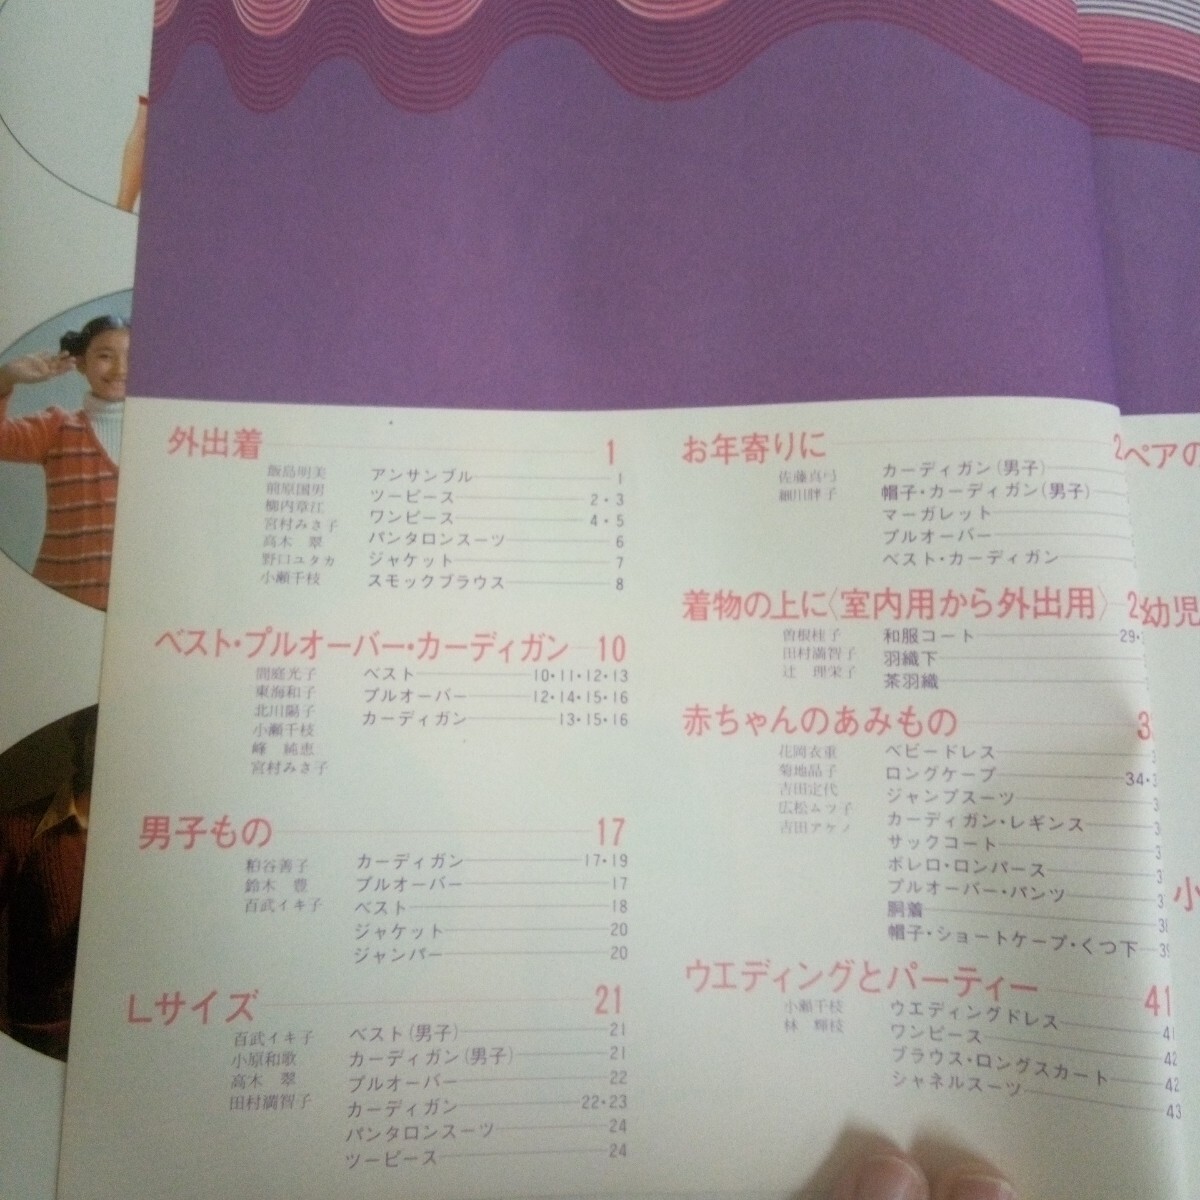 外出着 1
飯島明美
前原国男
柳内章江
宮村みさ子
高木　翠
野口ユタカ
小瀬千枝
アンサンブル 1
ツーピース 2・3
ワンピース 4・5
パンタロンスーツ 6
ジャケット 7
スモックブラウス 8
ベスト・プルオーバー・カーディガン 10
間庭光子
東海和子
北川陽子
小瀬千枝
峰　純恵
宮村みさ子
ベスト 10・11・12・13
プルオーバー 12・14・15・16
カーディガン 13・15・16
男子もの 17
粕谷善子
鈴木　豊
百武イキ子
カーディガン 17・19
プルオーバー 17
ベスト 18
ジャケット 20
ジャンパー 20
Lサイズ 21
百武イキ子
小原和歌
高木　翠
田村満智子
ベスト(男子) 21
カーディガン(男子) 21
プルオーバー 22
カーディガン 22・23
パンタロンスーツ 24
ツーピース 24
お年寄りに 2
佐藤真弓
細川胖子
カーディガン(男子)
帽子・カーディガン(男子)
マーガレット
プルオーバー
ベスト・カーディガン
着物の上に〈室内用から外出用〉 2
曽根桂子
田村満智子
辻　理栄子
和服コート 29・
羽織下
茶羽織
赤ちゃんのあみもの 3
花岡衣重
菊地晶子
吉田定代
広松ムツ子
吉田アケノ
ベビードレス
ロングケープ 34・
ジャンプスーツ
カーディガン・レギンス
サックコート
ボレロ・ロンパース
プルオーバー・パンツ
胴着 38
帽子・ショートケープ・くつ下 39
ウエディングとパーティー 41
小瀬千枝
林　輝枝
ウエディングドレス 41
ワンピース 42
ブラウス・ロングスカート 42
シャネルスーツ 43
ペアの
幼児
小